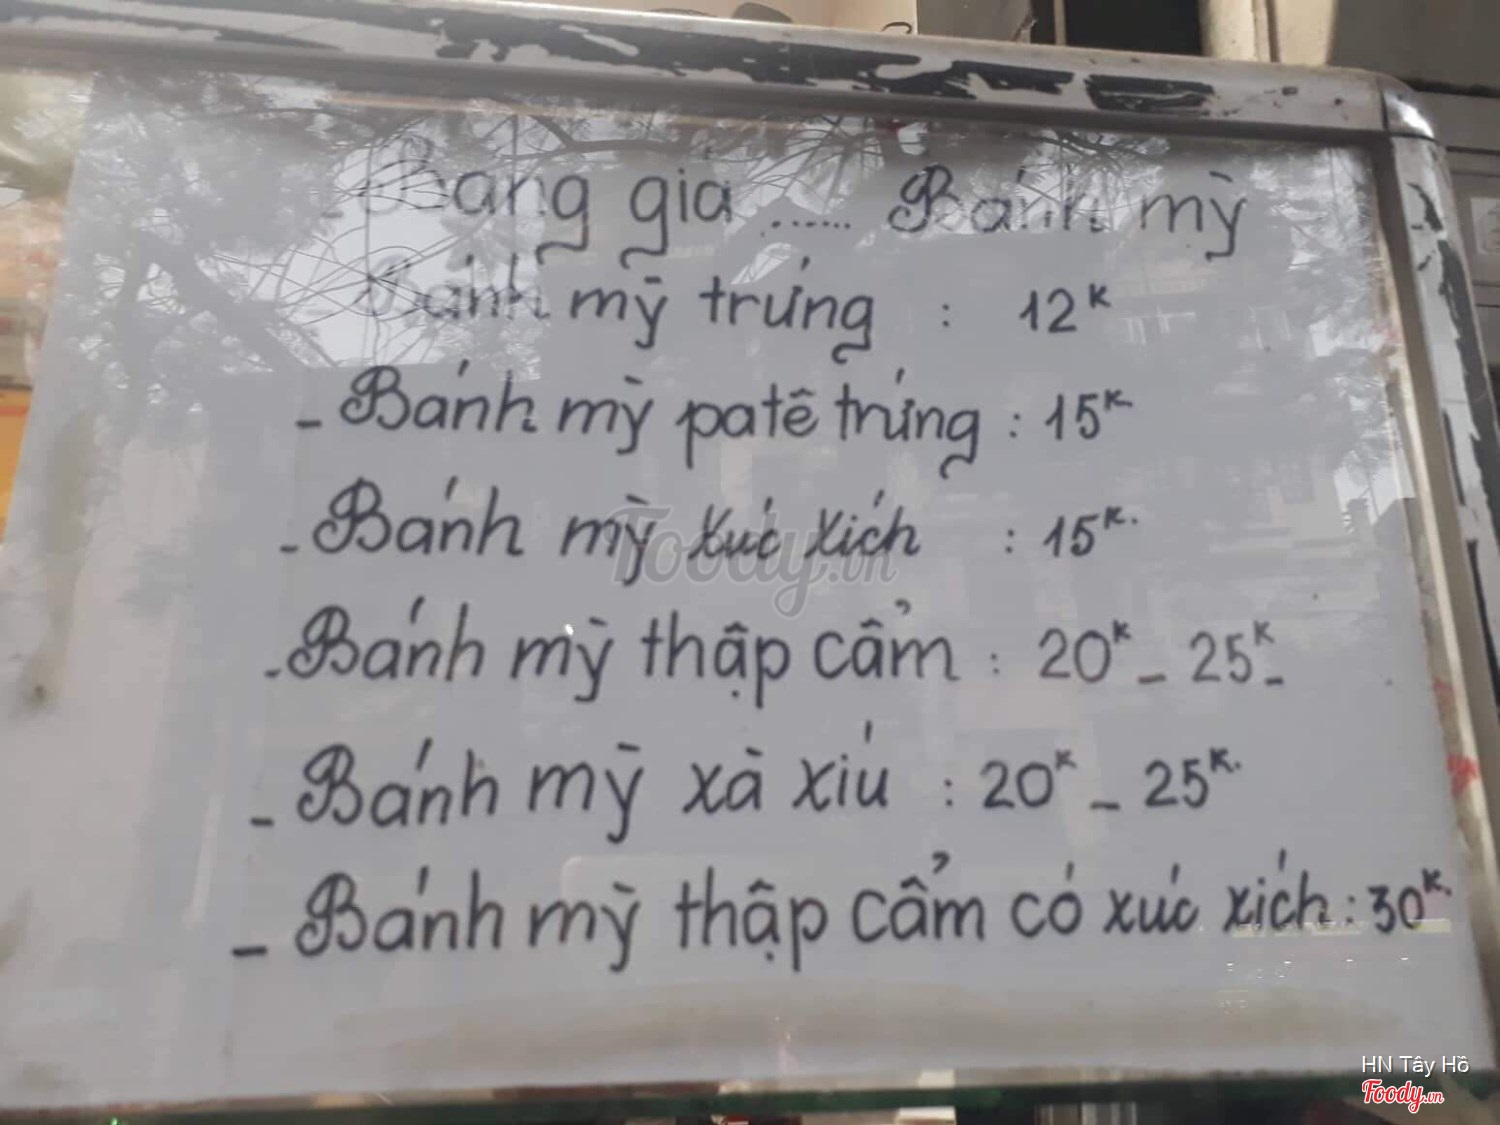 - Bảng giá ...... Bánh mỳ
Bánh mỳ trứng : 12K
- Bánh mỳ patê trứng : 15K.
- Bánh mỳ xúc xích : 15K.
- Bánh mỳ thập cẩm : 20K - 25K -
- Bánh mỳ xà xíu : 20K - 25K.
- Bánh mỳ thập cẩm có xúc xích : 30K.
Foody.vn
HN Tây Hồ
Foody.vn